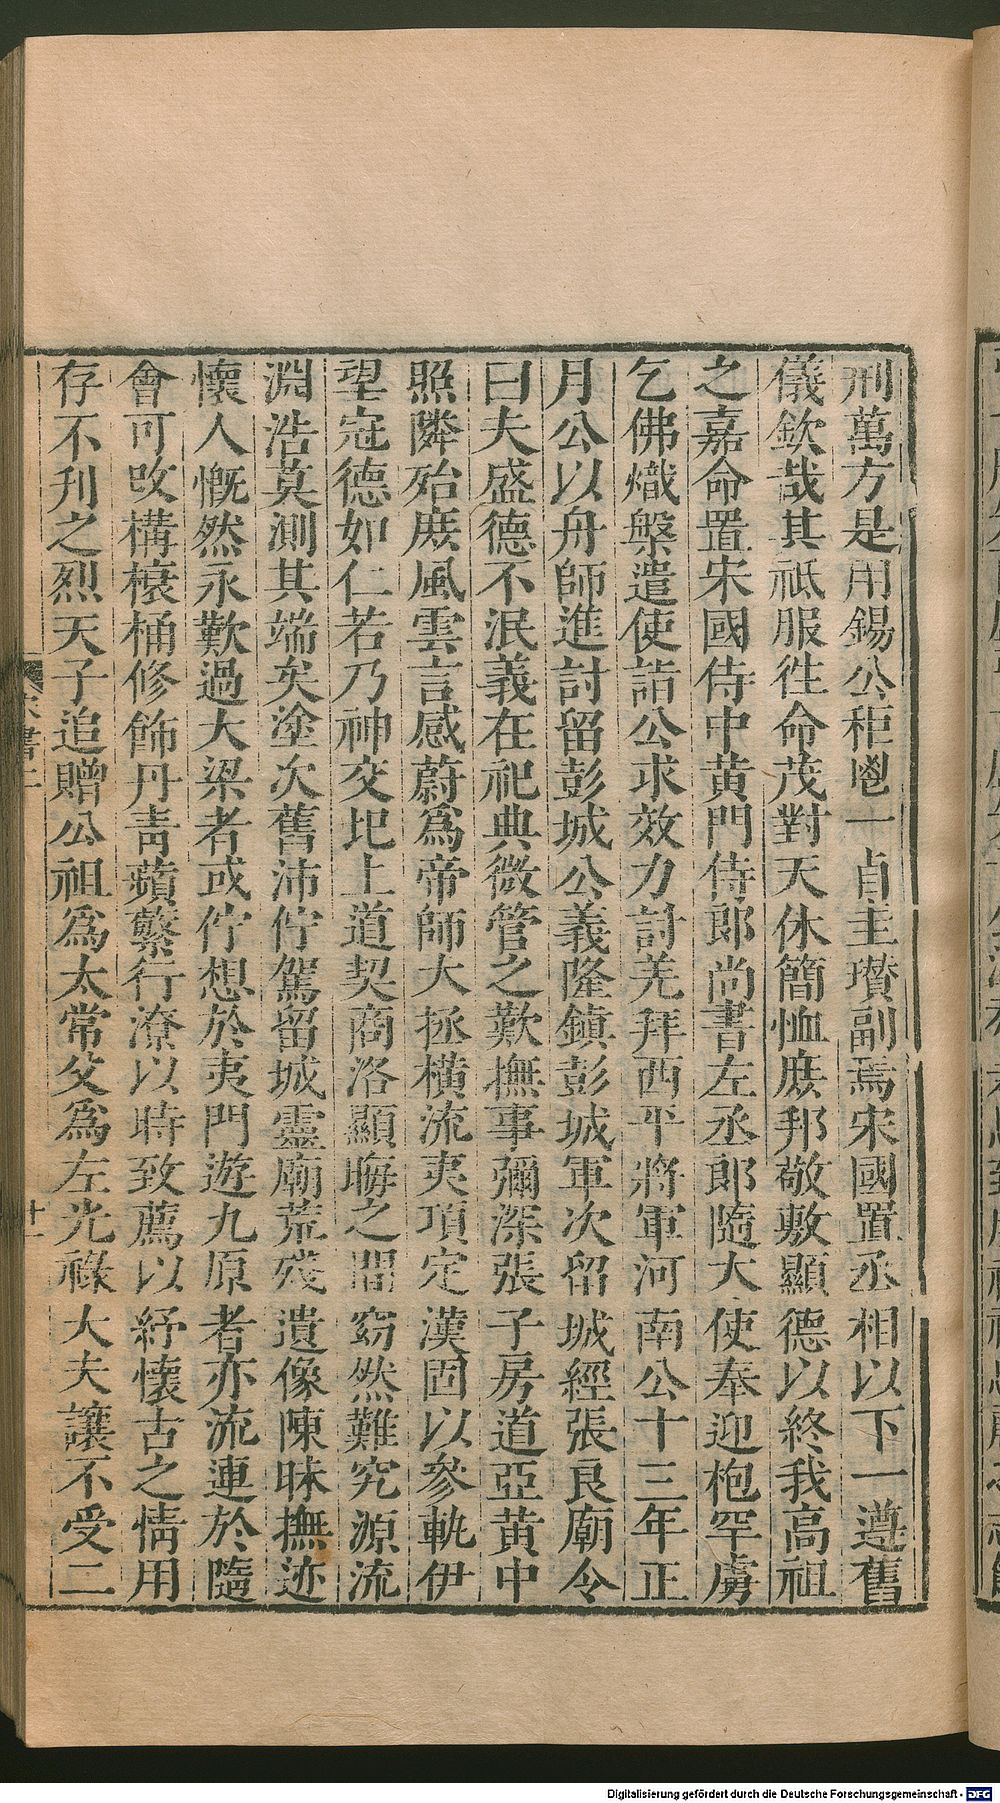 刑萬方是用錫公秬鬯一卣圭瓚副焉宋國置丞相以下一遵舊
儀欽哉其祗服徃命茂對天休簡恤庶邦敬敷顯德以終我高祖
之嘉命置宋國侍中黃門侍郎尚書左丞郎隨大使奉迎枹罕虜
乞佛熾槃遣使詣公求效力討羌拜西平將軍河南公十三年正
月公以舟師進討留彭城公義隆鎮彭城軍次留城經張良廟令
曰夫盛德不泯義在祀典微管之歎撫事彌深張子房道亞黃中
照隣殆庶風雲言感蔚爲帝師大拯橫流夷項定漢固以參軌伊
望冠德如仁若乃神交圯上道契商洛顯晦之間窈然難究源流
淵浩莫測其端矣塗次舊沛佇駕留城靈廟荒殘遺像陳昧撫迹
懷人慨然永歎過大梁者或佇想於夷門遊九原者亦流連於隨
會可改構榱桷修飾丹青蘋蘩行潦以時致薦以紓懷古之情用
存不刋之烈天子追贈公祖爲太常父爲左光祿大夫讓不受二
宋書二
廿一
Digitalisierung gefördert durch die Deutsche Forschungsgemeinschaft - DFG